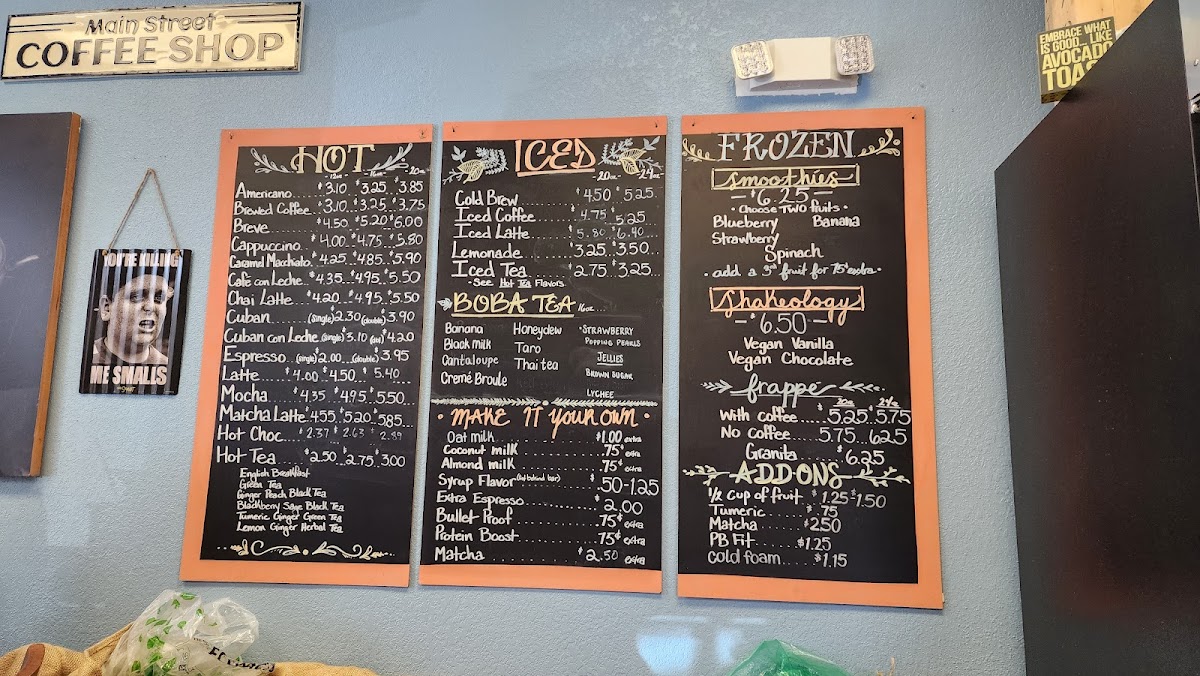 Main Street
COFFEE SHOP
EMBRACE WHAT
IS GOOD... LIKE
AVOCADO
TOAS
YOU'RE KILLING
ME SMALLS
HOT
12oz 16oz 20oz
Americano $3.10 $3.25 $3.85
Brewed Coffee $3.10 $3.25 $3.75
Breve $4.50 $5.20 $6.00
Cappuccino $4.00 $4.75 $5.80
Caramel Macchiato $4.25 $4.85 $5.90
Café con Leche $4.35 $4.95 $5.50
Chai Latte $4.20 $4.95 $5.50
Cuban (single) $2.30 (double) $3.90
Cuban con Leche (single) $3.10 $4.20
Espresso (single) $2.00 (double) $3.95
Latte $4.00 $4.50 $5.40
Mocha $4.35 $4.95 $5.50
Matcha Latte $4.55 $5.20 $5.85
Hot Choc $2.37 $2.63 $2.89
Hot Tea $2.50 $2.75 $3.00
English Breakfast
Green Tea
Ginger Peach Black Tea
Blackberry Sage Black Tea
Tumeric Ginger Green Tea
Lemon Ginger Herbal Tea
ICED
20oz 24oz
Cold Brew $4.50 $5.25
Iced Coffee $4.75 $5.25
Iced Latte $5.80 $6.40
Lemonade 3.25 3.50
Iced Tea $2.75 $3.25
• See Hot Tea Flavors
BOBA TEA 16oz
Banana Honeydew • STRAWBERRY
POPPING PEARLS
Black milk Taro JELLIES
Cantaloupe Thai tea BROWN SUGAR
Cremé Broule LYCHEE
• MAKE IT YOUR OWN •
Oat milk $1.00 extra
Coconut milk .75¢ extra
Almond milk .75¢ extra
Syrup Flavor .50-1.25
Extra Espresso 2.00
Bullet Proof .75¢ extra
Protein Boost .75¢ extra
Matcha $2.50 extra
FROZEN
Smoothies
- $6.25 -
• Choose TWO fruits •
Blueberry Banana
Strawberry
Spinach
• add a 3rd fruit for 75¢ extra •
Shakeology
- $6.50 -
Vegan Vanilla
Vegan Chocolate
frappe
20oz 24oz
With coffee $5.25 $5.75
No Coffee 5.75 6.25
Granita $6.25
ADD•ONS
1/2 Cup of fruit $1.25 $1.50
Tumeric $.75
Matcha $2.50
PB Fit $1.25
cold foam $1.15